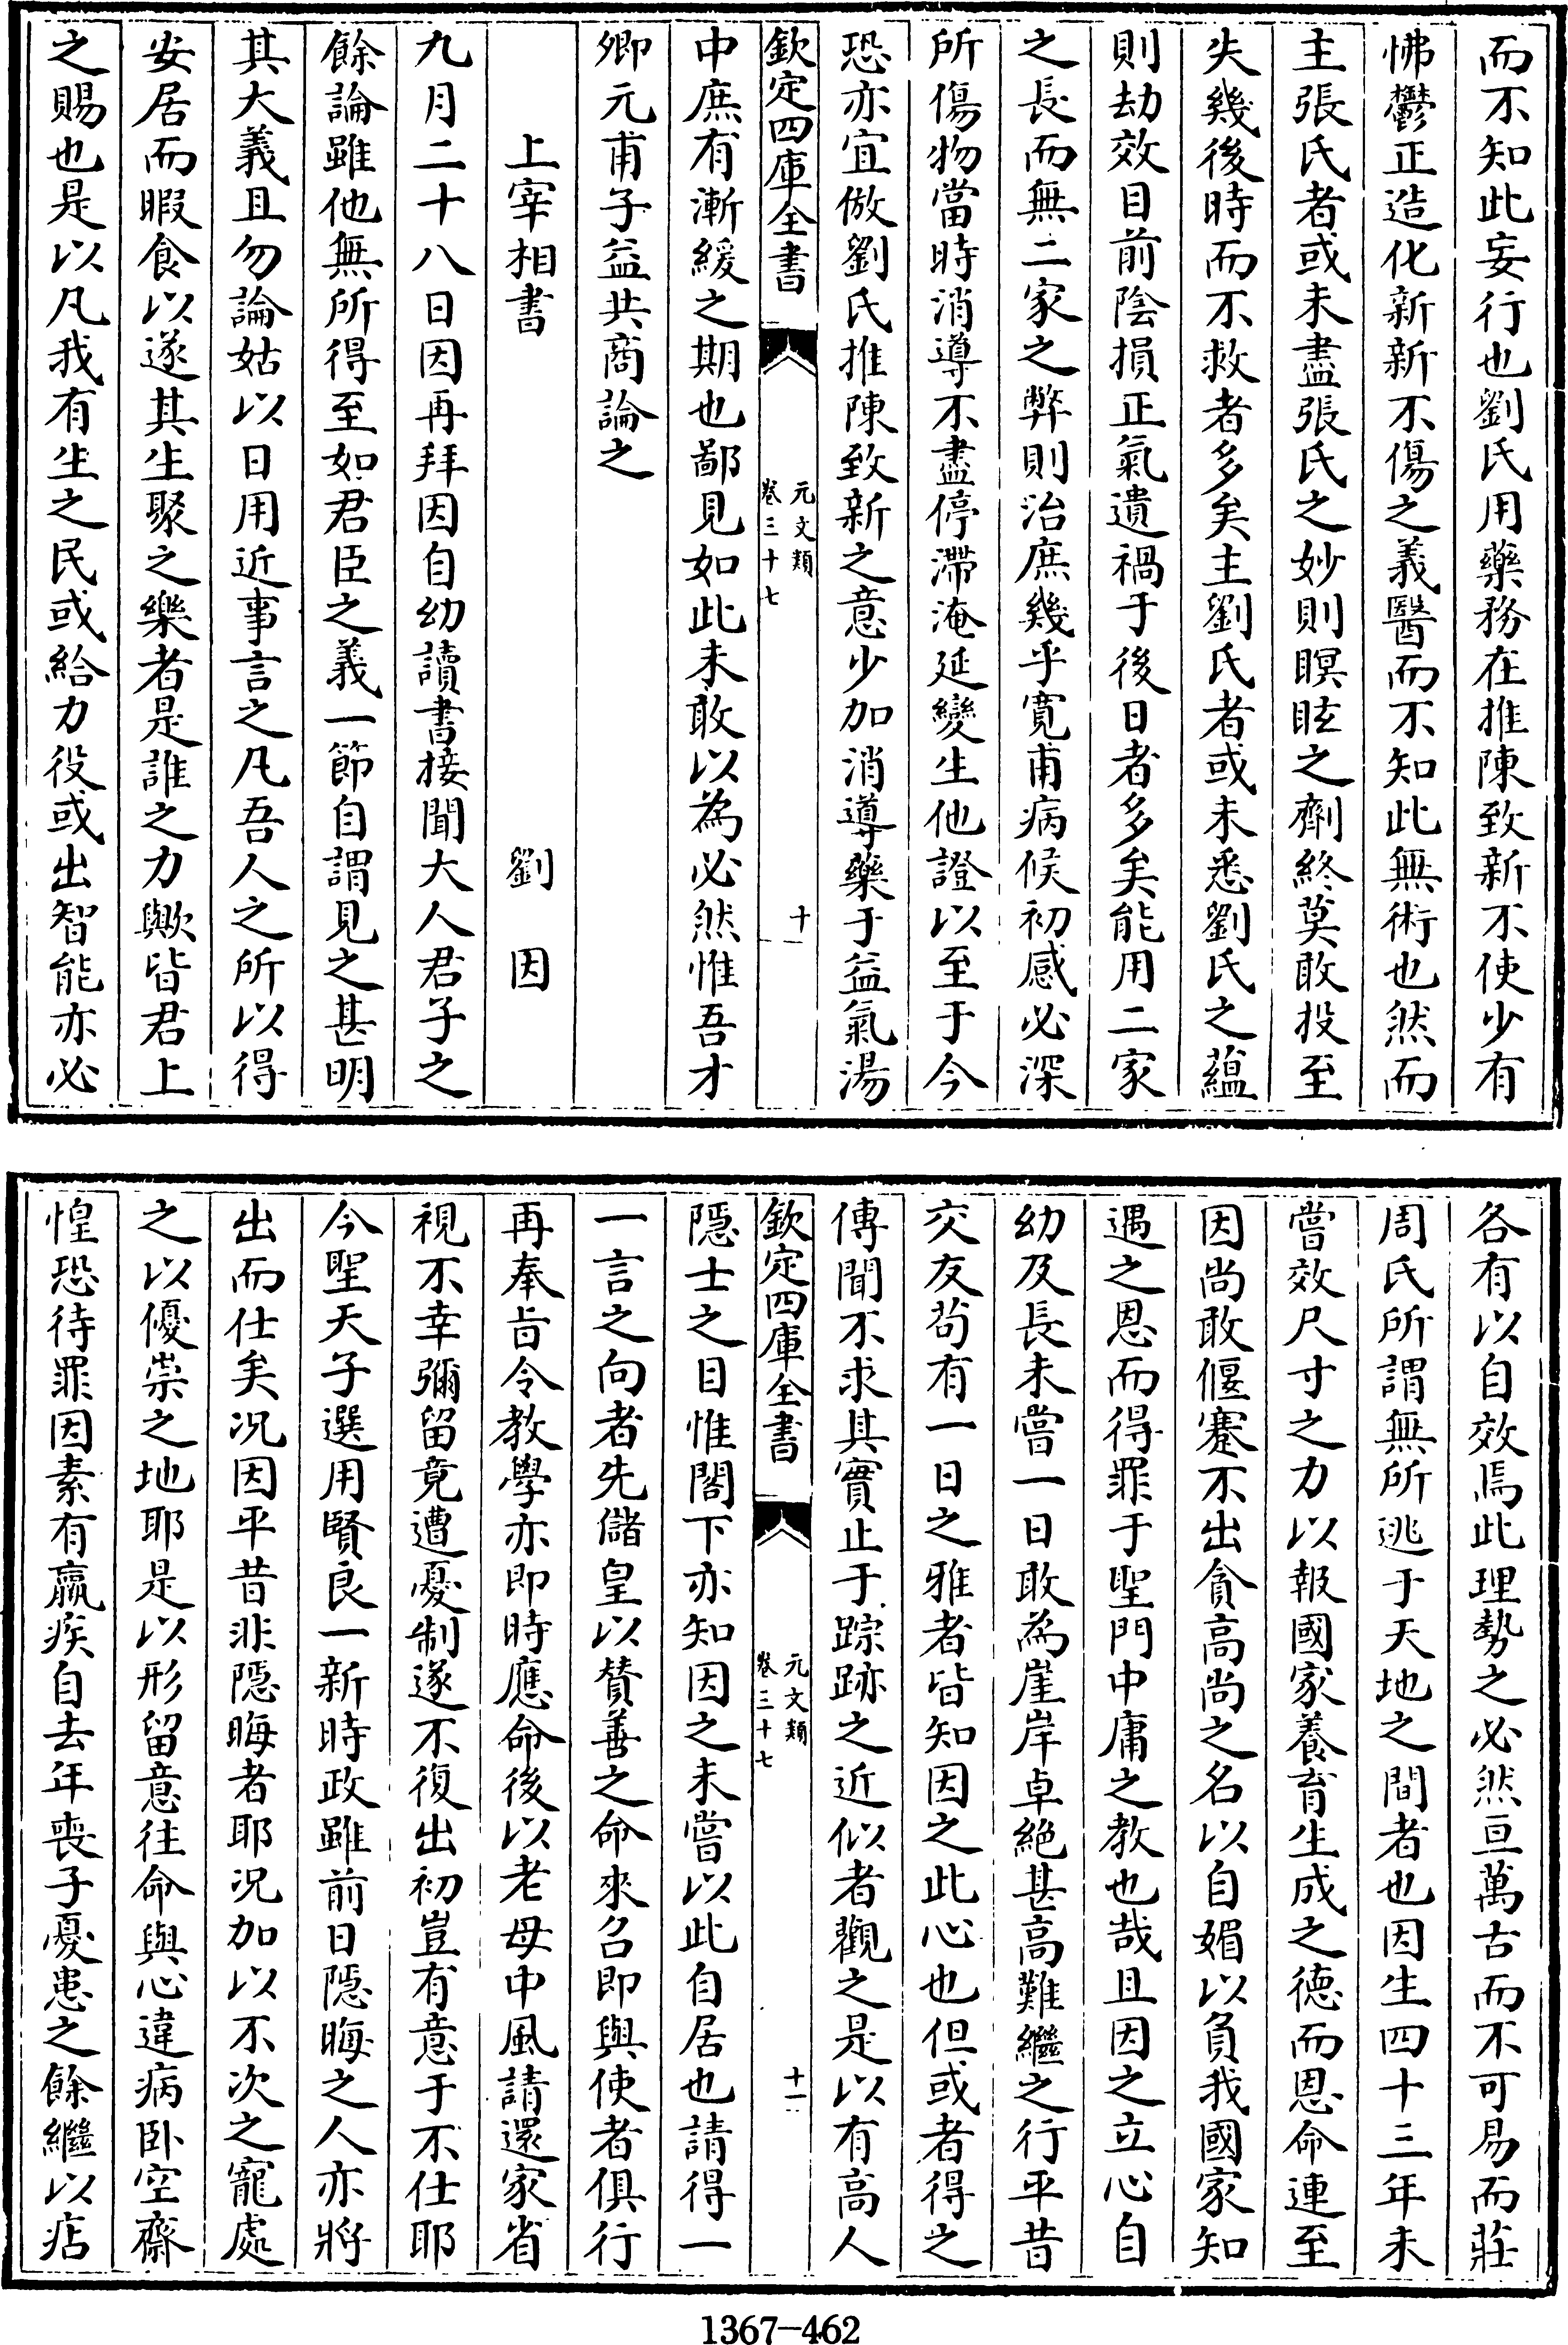 而不知此妄行也劉氏用藥務在推陳致新不使少有
怫鬱正造化新新不傷之義醫而不知此無術也然而
主張氏者或未盡張氏之妙則瞑眩之劑終莫敢投至
失幾後時而不救者多矣主劉氏者或未悉劉氏之蘊
則劫效目前陰損正氣遺禍于後日者多矣能用二家
之長而無二家之弊則治庶幾乎寛甫病候初感必深
所傷物當時消導不盡停滯淹延變生他證以至于今
恐亦宜倣劉氏推陳致新之意少加消導藥于益氣湯
欽定四庫全書
元文類
卷三十七
十
中庶有漸緩之期也鄙見如此未敢以為必然惟吾才
卿元甫子益共商論之
上宰相書 劉因
九月二十八日因再拜因自幼讀書接聞大人君子之
餘論雖他無所得至如君臣之義一節自謂見之甚明
其大義且勿論姑以日用近事言之凡吾人之所以得
安居而暇食以遂其生聚之樂者是誰之力歟皆君上
之賜也是以凡我有生之民或給力役或出智能亦必
各有以自效焉此理勢之必然亘萬古而不可易而莊
周氏所謂無所逃于天地之間者也因生四十三年未
嘗效尺寸之力以報國家養育生成之德而恩命連至
因尚敢偃蹇不出貪高尚之名以自媚以負我國家知
遇之恩而得罪于聖門中庸之教也哉且因之立心自
幼及長未嘗一日敢為崖岸卓絶甚高難繼之行平昔
交友茍有一日之雅者皆知因之此心也但或者得之
傳聞不求其實止于踪跡之近似者觀之是以有高人
欽定四庫全書
元文類
卷三十七
十一
隱士之目惟閣下亦知因之未嘗以此自居也請得一
一言之向者先儲皇以贊善之命來召即與使者俱行
再奉旨令教學亦即時應命後以老母中風請還家省
視不幸彌留竟遭憂制遂不復出初豈有意于不仕耶
今聖天子選用賢良一新時政雖前日隱晦之人亦將
出而仕矣况因平昔非隱晦者耶况加以不次之寵處
之以優崇之地耶是以形留意往命與心違病卧空齋
惶恐待罪因素有羸疾自去年喪子憂患之餘繼以痁
1367-462